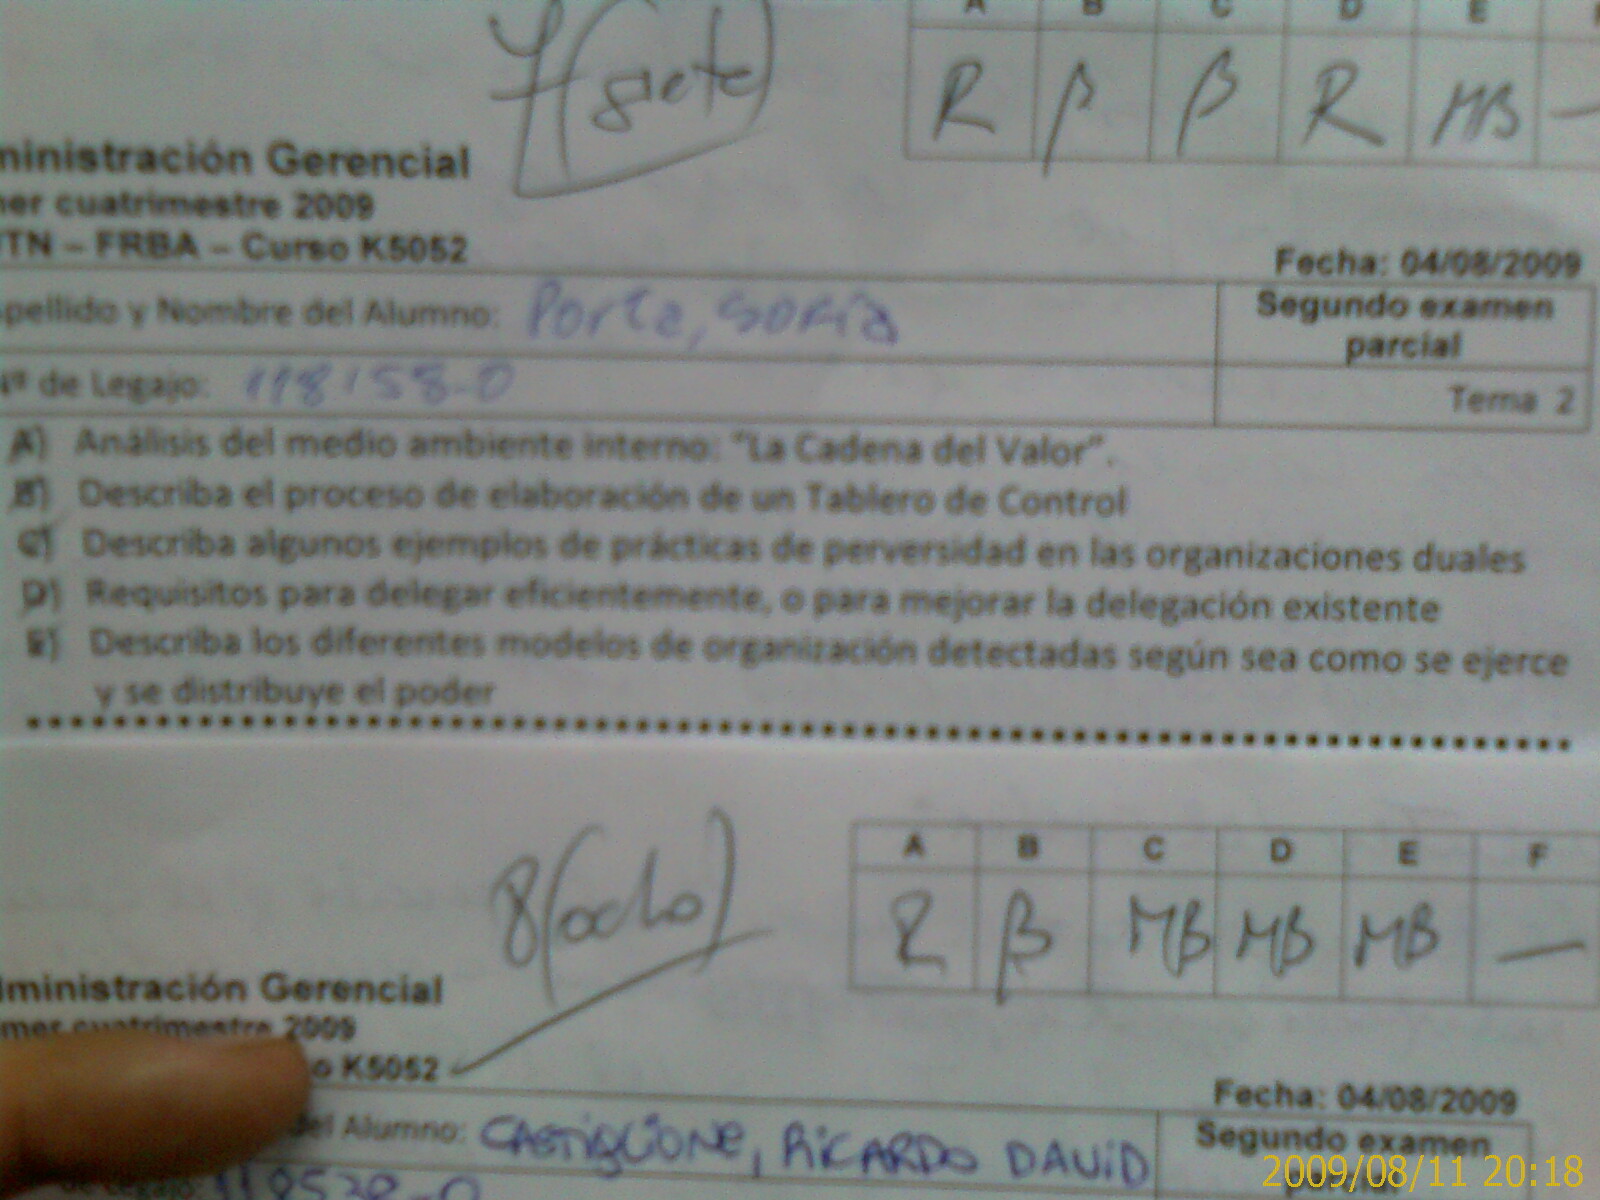 A B C D E
7 (siete) R B B R MB —
ministración Gerencial
mer cuatrimestre 2009
UTN – FRBA – Curso K5052
Fecha: 04/08/2009
pellido y Nombre del Alumno: Porta, Sofía
Segundo examen parcial
Nº de Legajo: 118158-0
Tema 2
A) Análisis del medio ambiente interno: "La Cadena del Valor".
B) Describa el proceso de elaboración de un Tablero de Control
C) Describa algunos ejemplos de prácticas de perversidad en las organizaciones duales
D) Requisitos para delegar eficientemente, o para mejorar la delegación existente
E) Describa los diferentes modelos de organización detectadas según sea como se ejerce
y se distribuye el poder
A B C D E F
8 (ocho) R B MB MB MB —
dministración Gerencial
mer cuatrimestre 2009
o K5052
Fecha: 04/08/2009
del Alumno: CASTIGLIONE, RICARDO DAVID
Segundo examen
parcial
de Legajo:
2009/08/11 20:18